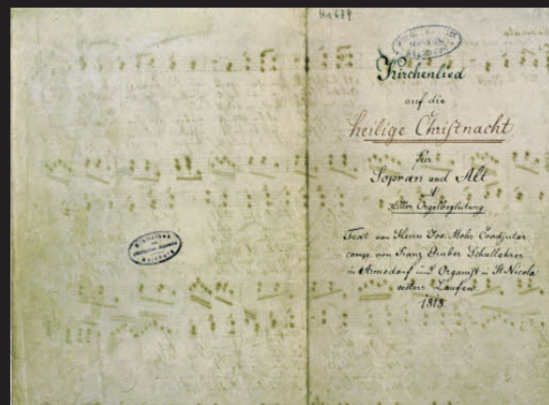 Ha 679
Kirchenlied
auf die
heilige Christnacht
für
Sopran und Alt
stiller Orgelbegleitung.
Text von Herrn Jos. Mohr Coadjutor
comp. von Franz Gruber Schullehrer
in Arnsdorf und Organist in St Nicola
Laufen
1818.